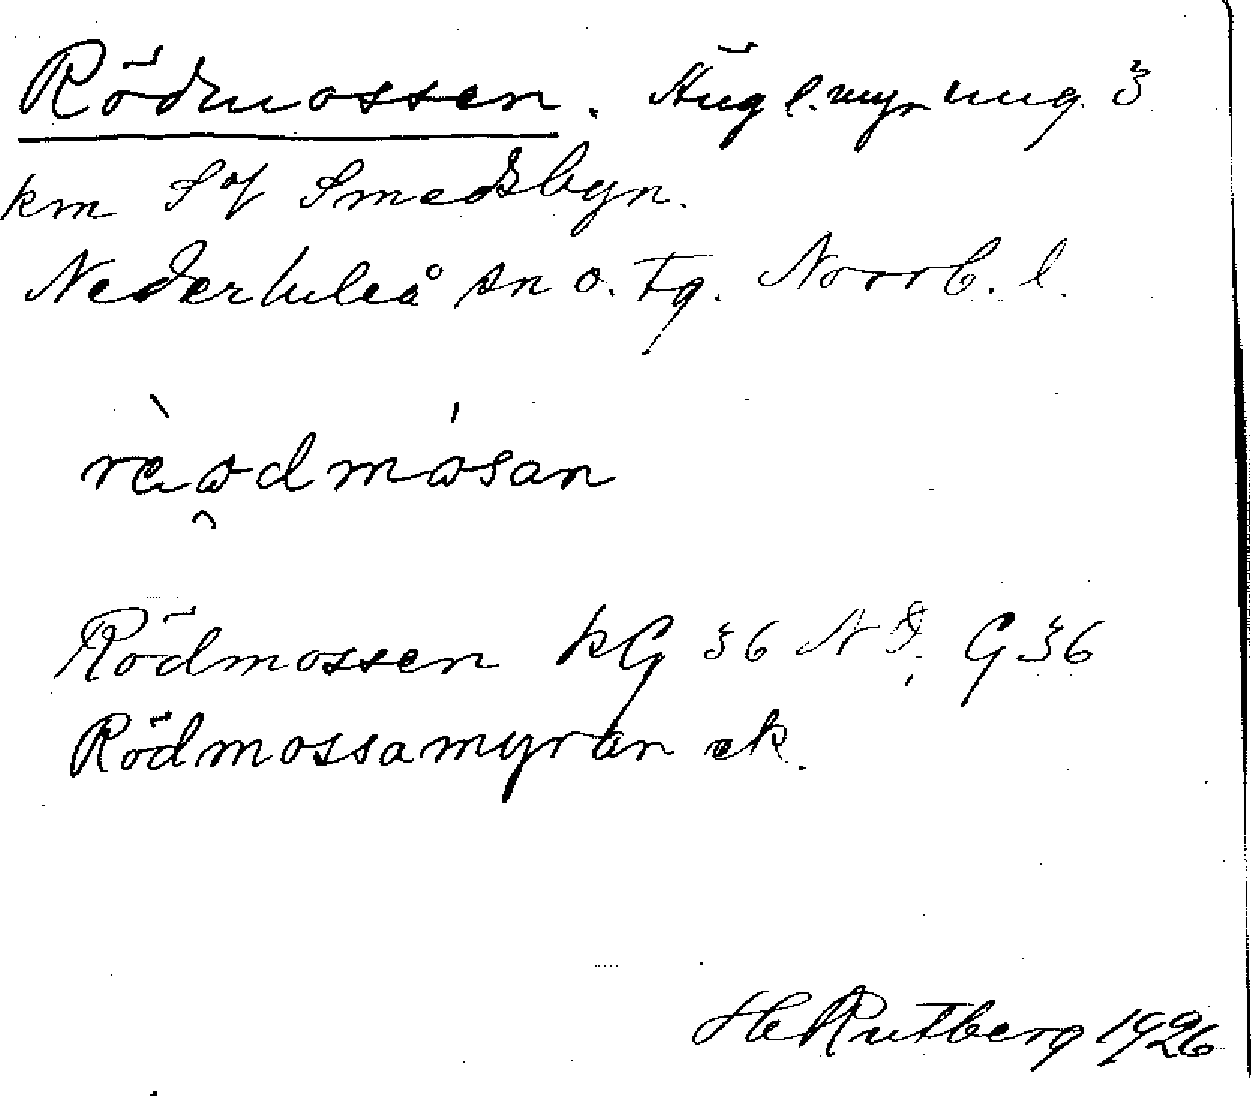 Rödmossen. Äng l. myr ung. 3
km S of Smedsbyn.
Nederluleå sn o. tg. Norrb. l.
rèɷdmɷ́san
Rödmossen kG 36 NO, G 36
Rödmossamyran ek.
H Rutberg 1926